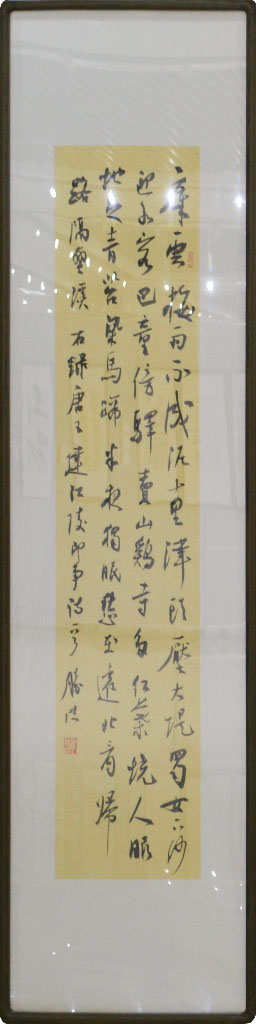 瘴雲梅雨不成泥十里津頭壓大堤蜀女下沙
迎水客巴童傍驛賣山鷄寺多紅藥燒人眼
地足青苔染馬蹄半夜獨眠愁在遠北看歸
路隔蠻溪 右錄唐王建江陵即事詩